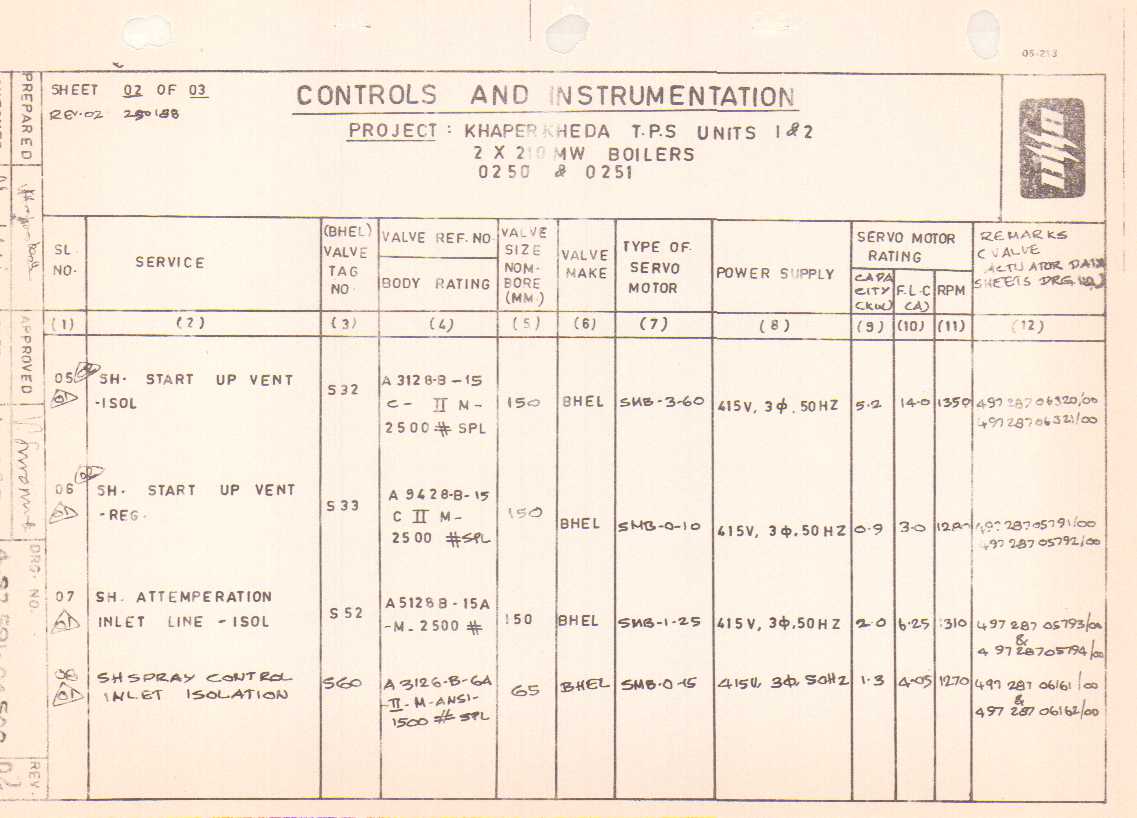 05-213
SHEET 02 OF 03
REV.02
CONTROLS AND INSTRUMENTATION
PROJECT : KHAPERKHEDA T.P.S UNITS 1 & 2
2 X 210 MW BOILERS
0250 & 0251
PREPARED
APPROVED
DRG. NO.
REV.
SL. NO.
SERVICE
(BHEL) VALVE TAG NO.
VALVE REF. NO.
BODY RATING
VALVE SIZE NOM-BORE (MM.)
VALVE MAKE
TYPE OF SERVO MOTOR
POWER SUPPLY
SERVO MOTOR RATING
CAPACITY (KW)
F.L.C (A)
RPM
REMARKS
(VALVE
ACTUATOR DATA
SHEETS DRG.NO.)
(1) (2) (3) (4) (5) (6) (7) (8) (9) (10) (11) (12)
05 SH. START UP VENT
-ISOL
S32
A 3128-B-15
C- II M-
2500 # SPL
150
BHEL
SMB-3-60
415V, 3ф, 50HZ
5.2
14.0
1350
497 287 06320/00
497 287 06321/00
06 SH. START UP VENT
-REG.
S33
A 9428-B-15
C II M-
2500 #SPL
150
BHEL
SMB-0-10
415V, 3ф, 50HZ
0.9
3.0
497 287 05791/00
497 287 05792/00
07 SH. ATTEMPERATION
INLET LINE - ISOL
S52
A5128B-15A
-M-2500 #
150
BHEL
SMB-1-25
415V, 3ф, 50HZ
2.0
6.25
1310
497 287 05793/00
&
497 28705794/00
08 SH SPRAY CONTROL
INLET ISOLATION
S60
A 3126-B-6A
-II-M-ANSI-
1500 # SPL
65
BHEL
SMB-0-15
415V, 3ф, 50HZ
1.3
4.05
1270
497 287 06161/00
&
497 287 06162/00